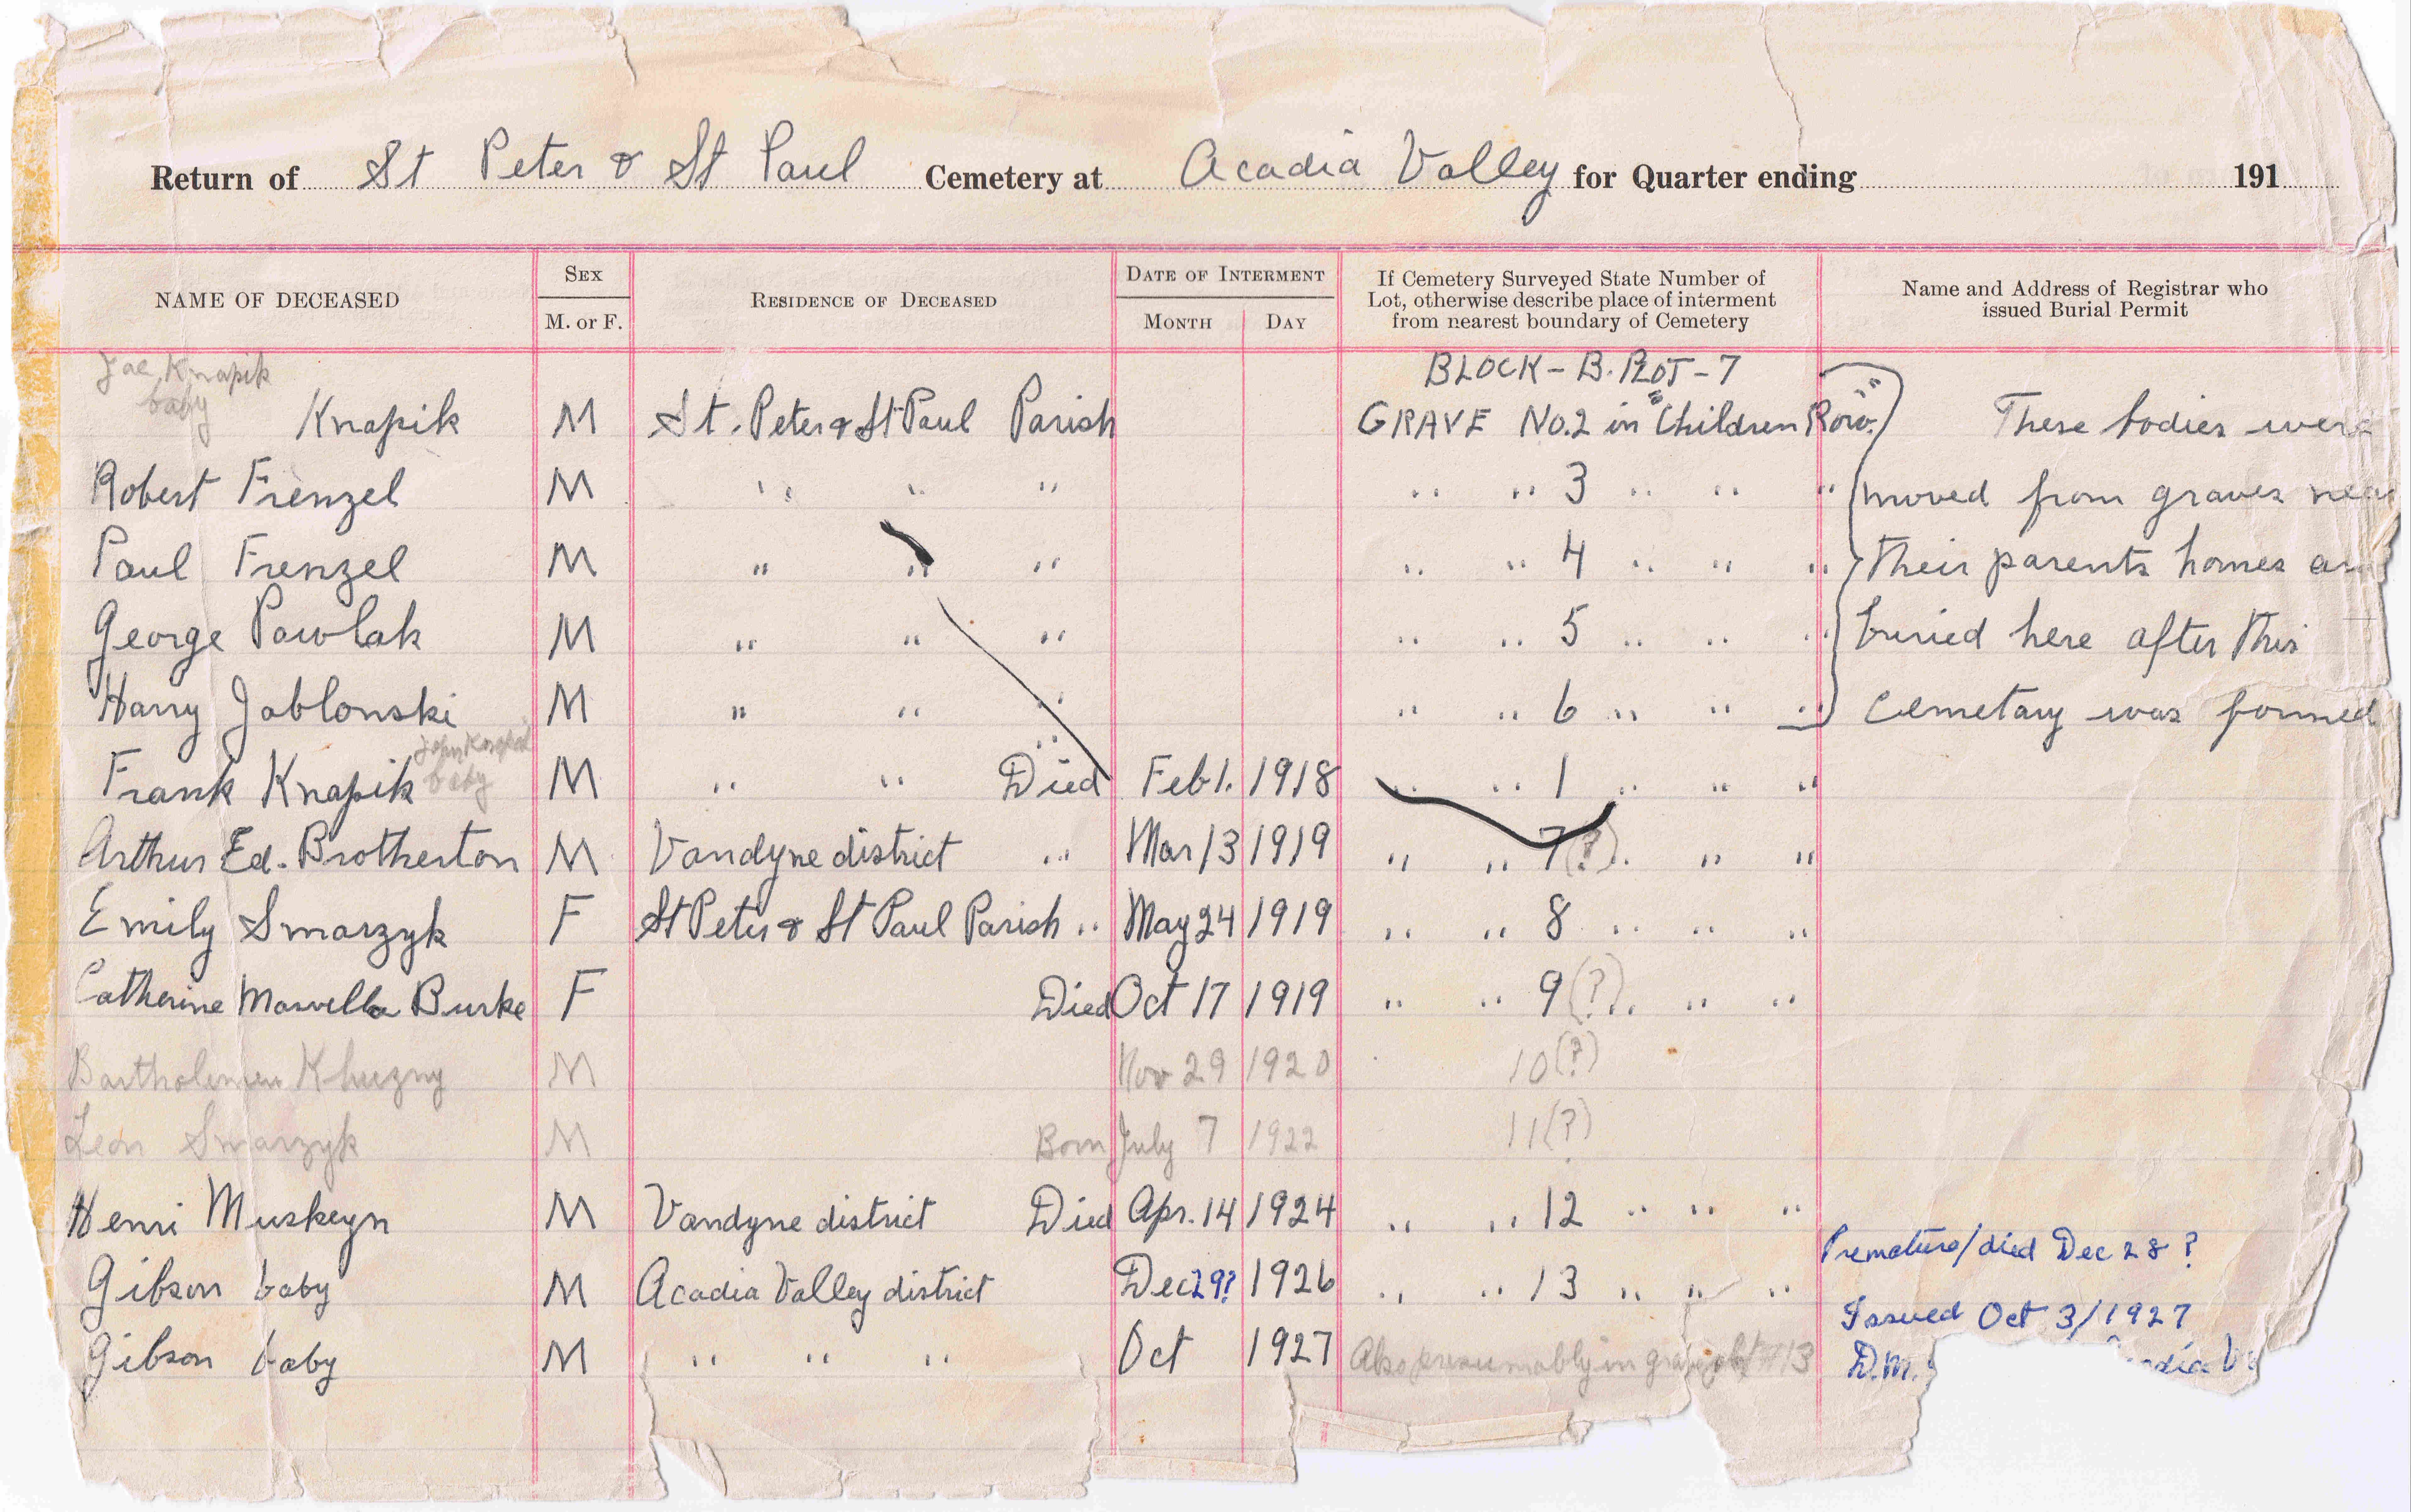 Return of St Peter & St Paul Cemetery at Acadia Valley for Quarter ending 191
NAME OF DECEASED
SEX
M. or F.
RESIDENCE OF DECEASED
DATE OF INTERMENT
MONTH DAY
If Cemetery Surveyed State Number of
Lot, otherwise describe place of interment
from nearest boundary of Cemetery
Name and Address of Registrar who
issued Burial Permit
Joe Knapik
baby
BLOCK - B. PLOT - 7
Knapik M St. Peter & St Paul Parish GRAVE No. 2 in "Children Row." These bodies were
Robert Frenzel M " " " " " 3 " " " moved from graves near
Paul Frenzel M " " " " " 4 " " " their parents homes
George Pawlak M " " " " " 5 " " " buried here after this
Harry Jablonski M " " " " " 6 " " " Cemetary was formed
baby
Frank Knapik M " " Died Feb 1. 1918 " " 1 " " "
Arthur Ed. Brotherton M Vandyne district " Mar 13 1919 " " 7 (?) " " "
Emily Smarzyk F St Peter & St Paul Parish " May 24 1919 " " 8 " " "
Catherine Burke F Died Oct 17 1919 " " 9 (?) " " "
Bartholemew M Nov 29 1920 10 (?)
Leon Smarzyk M Born July 7 1922 11 (?)
Henri Muskeyn M Vandyne district Died Apr. 14 1924 " " 12 " " "
Premature/died Dec 28 ?
Gibson baby M Acadia Valley district Dec 29? 1926 " " 13 " " "
Issued Oct 3/1927
Gibson baby M " " " Oct 1927 Also presumably in #13 D.M.